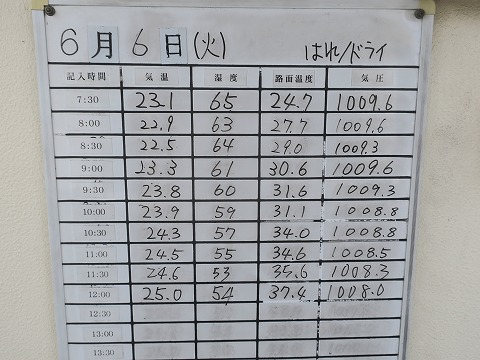 6月6日(火) はれ/ドライ
記入時間 気温 湿度 路面温度 気圧
7:30 23.1 65 24.7 1009.6
8:00 22.9 63 27.7 1009.6
8:30 22.5 64 29.0 1009.3
9:00 23.3 61 30.6 1009.6
9:30 23.8 60 31.6 1009.3
10:00 23.9 59 31.1 1008.8
10:30 24.3 57 34.0 1008.8
11:00 24.5 55 34.6 1008.5
11:30 24.6 53 35.6 1008.3
12:00 25.0 54 37.4 1008.0
12:30
13:00
13:30